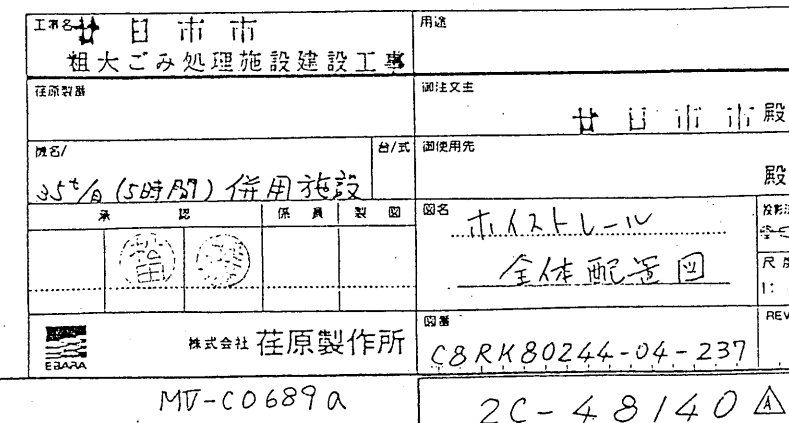 工事名 廿日市市
粗大ごみ処理施設建設工事
用途
荏原製番
御注文主
廿日市市 殿
機名/
台/式
御使用先
35t/日(5時間)併用施設
殿
承認
係員
製図
図名 ホイストレール
全体配置図
尺度
1:
図番
REV
EBARA
株式会社 荏原製作所
C8RK80244-04-237
MV-C0689a
2C-48140 A